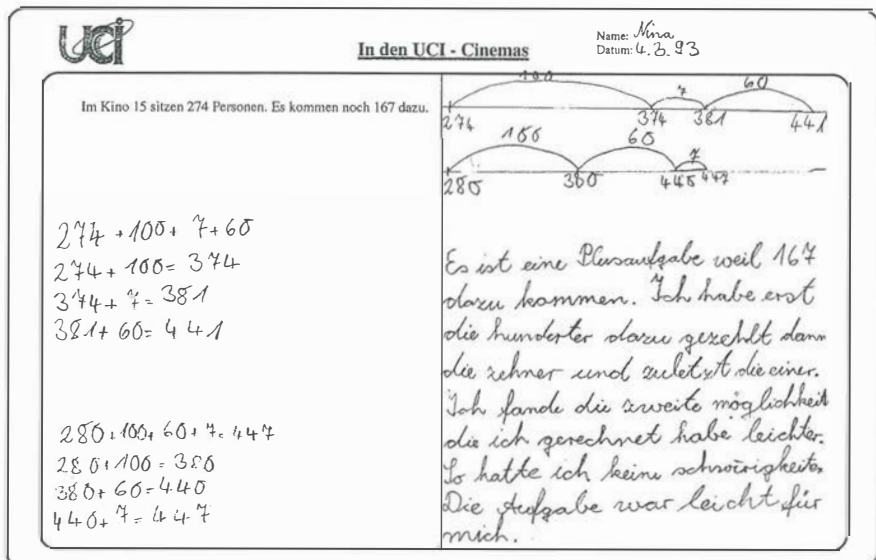 UCI
In den UCI - Cinemas
Name: Nina
Datum: 4.3.93
Im Kino 15 sitzen 274 Personen. Es kommen noch 167 dazu.
274 + 100 + 7 + 60
274 + 100 = 374
374 + 7 = 381
381 + 60 = 441
280 + 100 + 60 + 7 = 447
280 + 100 = 380
380 + 60 = 440
440 + 7 = 447
100 7 60
274 374 381 441
100 60 7
280 380 440 447
Es ist eine Plusaufgabe weil 167
dazu kommen. Ich habe erst
die hunderter dazu gezehlt dann
die zehner und zuletzt die einer.
Ich fande die zweite möglichkeit
die ich gerechnet habe leichter.
So hatte ich keine schwirigkeiten
Die Aufgabe war leicht für
mich.